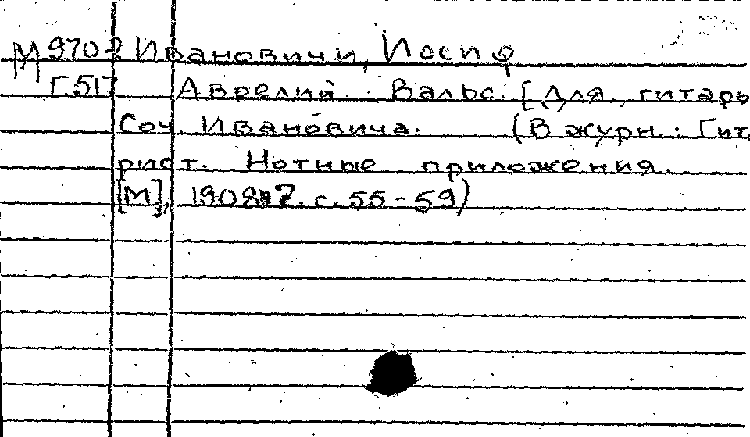 М 970-2 Ивановичи, Иосиф
Г.517 Аврелия. Вальс. [Для гитары
Соч. Ивановича. (В журн.: Гит
рист. Нотные приложения.
[М], 1908, 7. с. 55-59)